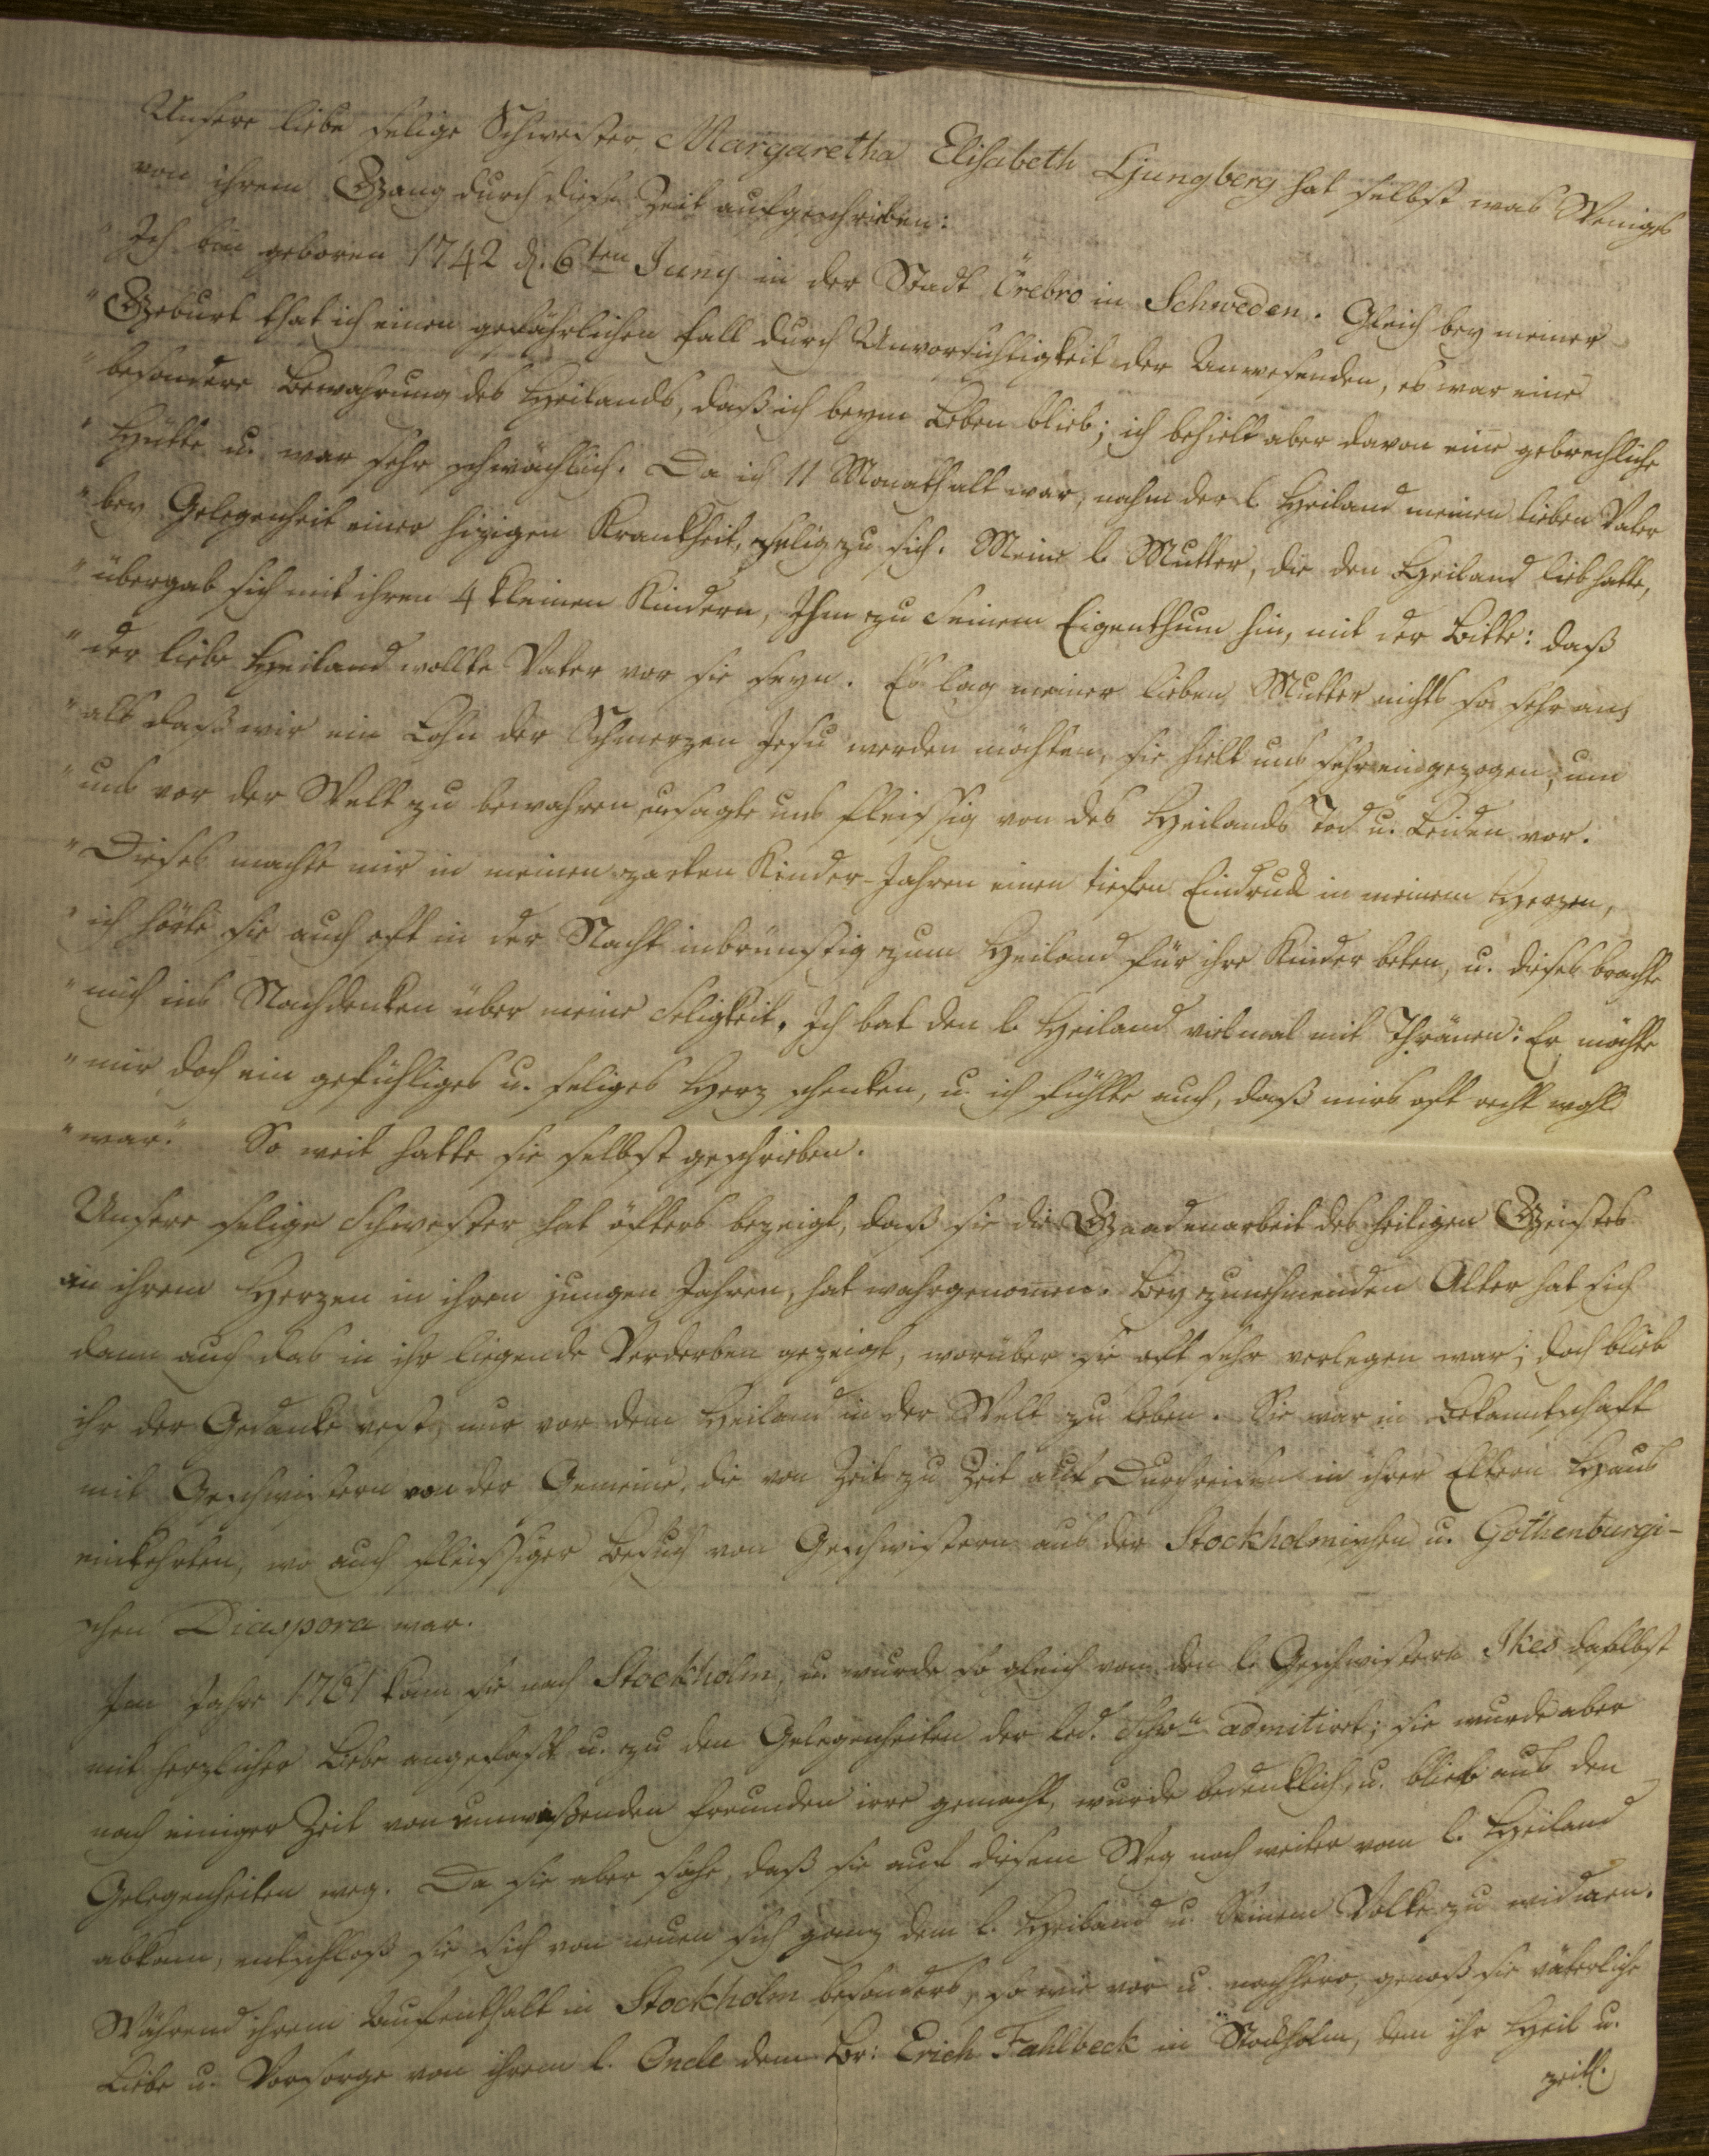 Unsere liebe selige Schwester, Margaretha Elisabeth Ljungberg hat selbst was Weniges
von ihrem Gang durch diese Zeit aufgeschrieben:
" Ich bin geboren 1742 d. 6ten Juny in der Stadt Örebro in Schweden. Gleich bey meiner
" Geburt that ich einen gefährlichen Fall durch Unvorsichtigkeit der Anwesenden, es war eine
" besondere Bewahrung des Heilands, daß ich beym Leben blieb; ich behielt aber davon eine gebrechliche
" Hütte u. war sehr schwächlich. Da ich 11 Monath alt war, nahm der l. Heiland meinen lieben Vater
" bey Gelegenheit einer hizigen Krankheit, selig zu sich. Meine l. Mutter, die den Heiland lieb hatte,
" übergab sich mit ihren 4 kleinen Kindern, Ihm zu Seinem Eigenthum hin, mit der Bitte: daß
" der liebe Heiland wollte Vater vor sie seyn. Es lag meiner lieben Mutter nichts so sehr an,
" als daß wir ein Lohn der Schmerzen Jesu werden möchten, sie hielt uns sehr eingezogen, um
" uns vor der Welt zu bewahren, u. sagte uns fleissig von des Heilands Tod u. Leiden vor.
" Dieses machte mir in meinen zarten Kinder-Jahren einen tiefen Eindruck in meinem Herzen,
" ich hörte sie auch oft in der Nacht inbrünstig zum Heiland für ihre Kinder beten, u. dieses brachte
" mich ins Nachdenken über meine Seligkeit. Ich bat den l. Heiland vielmal mit Thränen: Er möchte
" mir doch ein gefühliges u. seliges Herz schenken, u. ich fühlte auch, daß mirs oft recht wohl
" war." So weit hatte sie selbst geschrieben.
Unsere selige Schwester hat öfters bezeigt, daß sie die Gnadenarbeit des heiligen Geistes
an ihrem Herzen in ihren jungen Jahren, hat wahrgenomen. Bey zunehmenden Alter hat sich
dann auch das in ihr liegende Verderben gezeigt, worüber sie oft sehr verlegen war; doch blieb
ihr der Gedanke vest, nur vor dem Heiland in der Welt zu leben. Sie war in Bekanntschaft
mit Geschwistern von der Gemeine, die von Zeit zu Zeit auf Durchreisen in ihrer Eltern Haus
einkehrten, wo auch fleissiger Besuch von Geschwistern aus der Stockholmischen u. Gothenburgi-
schen Diaspora war.
Im Jahre 1761 kam sie nach Stockholm, u. wurde so gleich von den l. Geschwistern Ikes daselbst
mit herzlicher Liebe angefasst u. zu den Gelegenheiten der led. Schwn admitirt; sie wurde aber
nach einiger Zeit von unwissenden Freunden irre gemacht, wurde bedenklich, u. blieb aus den
Gelegenheiten weg. Da sie aber sahe, daß sie auf diesem Weg noch weiter vom l. Heiland
abkam, entschloß sie sich von neuen sich ganz dem l. Heiland u. Seinem Volke zu widmen.
Während ihrem Aufenthalt in Stockholm besonders, so wie vor u. nachhero, genoß sie väterliche
Liebe u. Vorsorge von ihrem l. Oncle dem Br: Erich Fahlbeck in Stockholm, dem ihr Heil u.
zeitl.